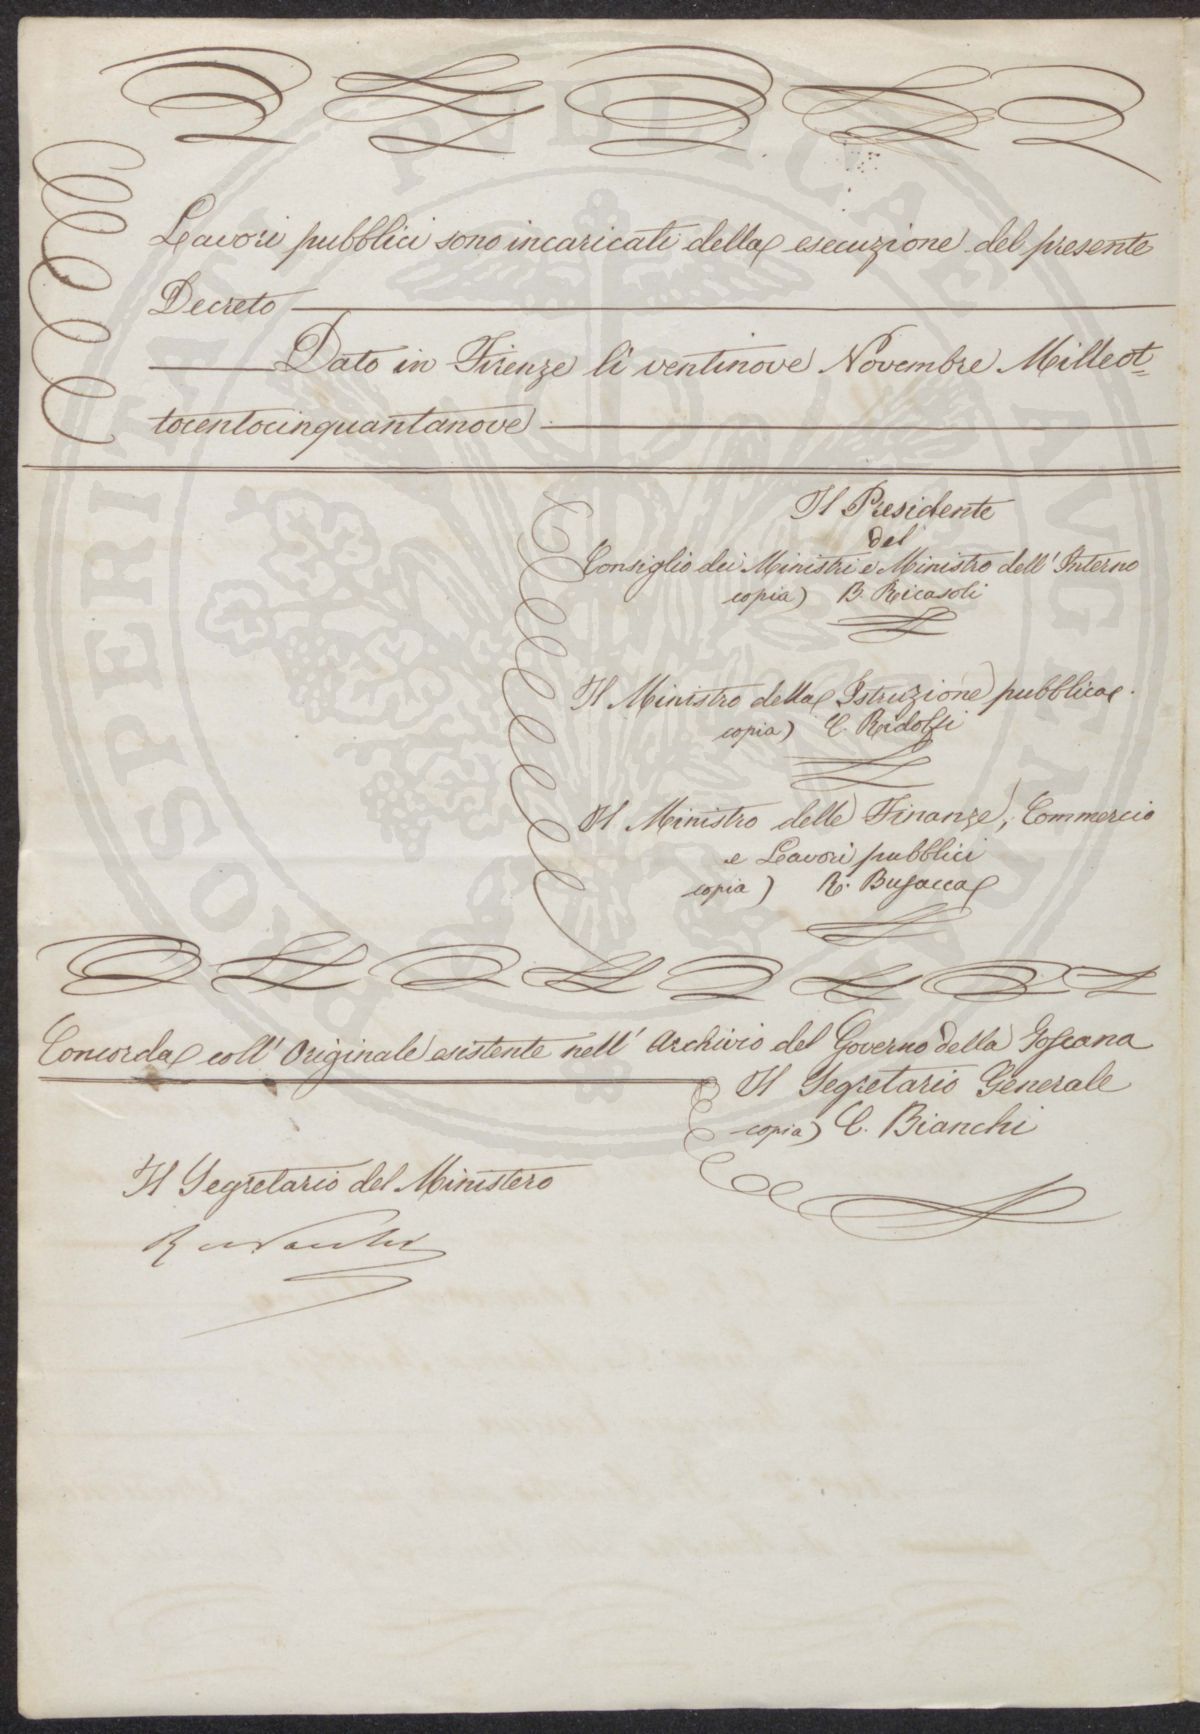 Lavori pubblici sono incaricati della esecuzione del presente
Decreto
Dato in Firenze li ventinove Novembre Milleot=
tocentocinquantanove
Il Presidente
del
Consiglio dei Ministri e Ministro dell' Interno
copia) B. Ricasoli
Il Ministro della Istruzione pubblica
copia) C. Ridolfi
Il Ministro delle Finanze, Commercio
e Lavori pubblici
copia) R. Busacca
Concorda coll' Originale esistente nell' Archivio del Governo della Toscana
Il Segretario Generale
copia) C. Bianchi
Il Segretario del Ministero
PROSPERITATI PUBLICAE AUGENDAE